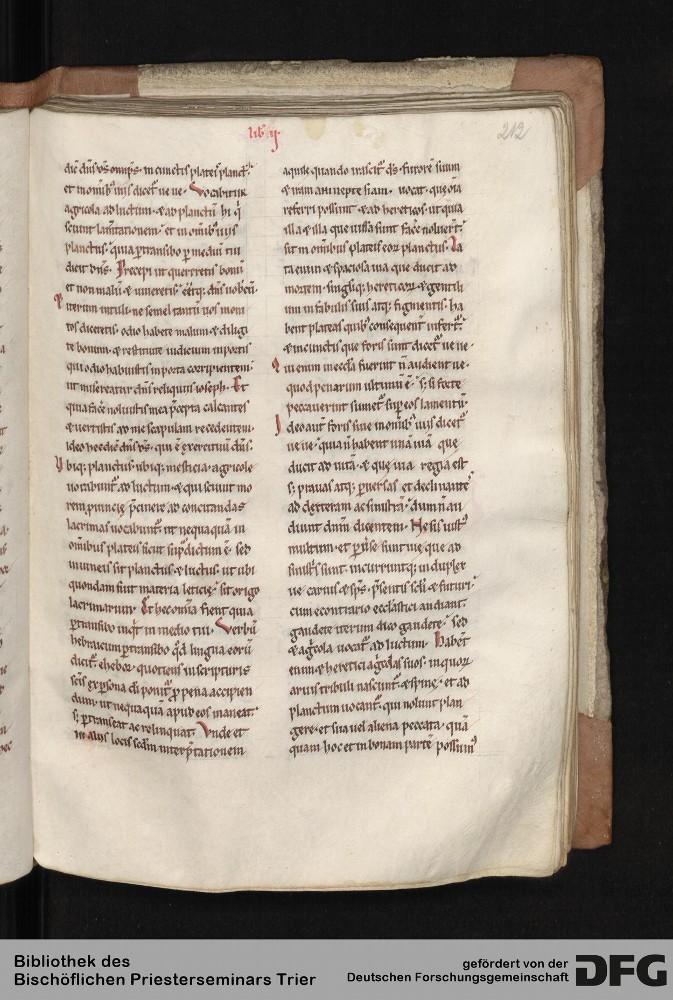 lib' ij.
212
dic̄ dn̄s ds̄ omīps. in cunctis plateis planct'.
et in om̄ib; uiis dicet' ue ue. Vocabitur
agricola ad luctum. & ad planctū hi q̄
sciunt lam̄tationem. et in om̄ib; uiis
planctus. quia ꝑtransibo ꝑ mediū tui
dicit dn̄s. Precepi ut quereretis bonū
et non malū. & uiueretis
iterum intuli. ne semel tantū uos moni
tos diceretis. odio habete malum. & diligi
te bonum. & restituite iudicium in portis
qui odio habuistis in porta corripientem.
ut misereatur dn̄s reliquiis ioseph. Et
quia facē noluistis mea p̄cepta calcantes
& uertistis ad me scapulam recedentem.
ideo hec dic̄ dn̄s ds̄. qui ē exercituū dn̄s.
Vbiq; planctus. ubiq; mesticia. agricole
uocabunt' ad luctum. & qui sciunt mo
rem ꝓuincię p̄cinere ad concitandas
lacrimas uocabunt'. ut nequaquā in
om̄ibus plateis sicut sup̄dictum ē. sed
in uineis sit planctus & luctus. ut ubi
quondam fuit materia leticię. sit origo
lacrimarum. Et hec om̄ia fient quia
ꝑtransibo inq̄t in medio tui. Verbū
hebraicum ꝑtransibo qd̄ lingua eorū
dicit' ehebor. quotiens in scripturis
sc̄is ex ꝑsona di ponit' ꝓ pena accipien
dum. ut nequaquā apud eos maneat.
s; ꝑtranseat ac relinquat. Vnde et
in aliis locis scd̄m interp̄tationem
aquile quando irascit' ds̄. furorē suum
& iram
referri possunt. & ad hereticos. ut quia
illa & illa que iussa sunt facē noluer̄t.
sit in om̄ibus plateis eoꝝ planctus. La
ta enim & spaciosa uia que ducit ad
mortem. singulisq; hereticoꝝ & gentili
um in fabulis suis atq; figmentis. ha
bent plateas quib; consequent' infert'.
& in cunctis que foris sunt dicet' ue ue.
Qui enim in eccl̄a fuerint n̄ audient ue.
quod penarum ultimū ē. s; si forte
peccauerint sumet' sup̄ eos lamentū.
Ideo aut̄ foris siue in om̄ib; uiis dicet'
ue ue. quia n̄ habent unā uiā que
ducit ad uitā. & quę uia regia est
s; prauas atq; ꝑuersas et declinante'
ad dexteram ac sinistrā. dum n̄ au
diunt dn̄m dicentem. Ne sis iust'
multum. et ꝑ uie sunt uie que ad
sinistrā sunt. incurruntq; in duplex
ue carnis & sp̄s. p̄sentis sclī & futuri.
cum econtrario eccl̄astici audiant.
gaudete iterum dico gaudete. sed
& agr̄cola uocat' ad luctum. Habent
enim & heretici agr̄colas suos. in quoꝝ
aruis tribuli nascunt' & spinę. et ad
planctum uocant'. qui nolunt plan
gere. et sua uel aliena peccata. quā
quam hoc et in bonam partē possum'
Bibliothek des
Bischöflichen Priesterseminars Trier
gefördert von der
Deutschen Forschungsgemeinschaft
DFG